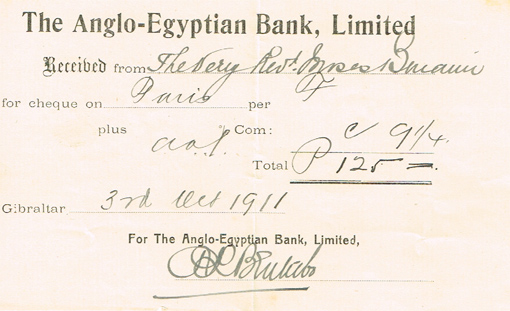 The Anglo-Egyptian Bank, Limited
Received from The Very Revd. Moses
for cheque on Paris per
plus % Com: 9 1/4.
Total P 125 =
Gibraltar 3rd Oct 1911
For The Anglo-Egyptian Bank, Limited,